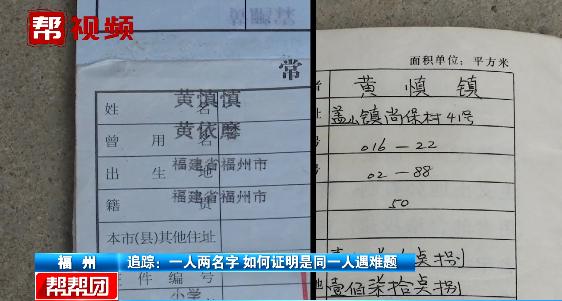 帮视频
常
姓名 黄滇慎
曾用名 黄依磨
出生地 福建省福州市
籍贯 福建省福州市
本市(县)其他住址
件编号
小学
面积单位：平方米
者 黄慎镇
址 盖山镇尚保村41号
号 016-22
号 02-88
50
壹佰柒拾点捌
福州 追踪：一人两名字 如何证明是同一人遇难题
帮帮团